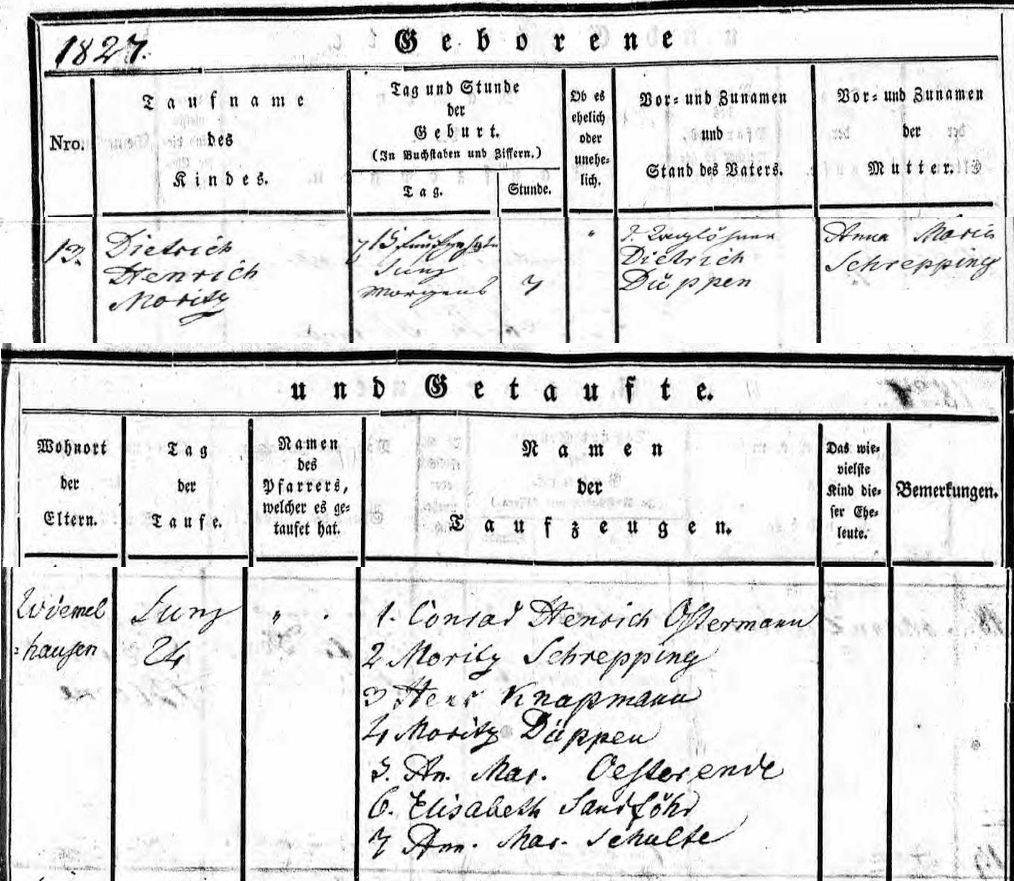 1827.
Geborene
Nro.
Taufname
des
Kindes.
Tag und Stunde
der
Geburt.
(In Buchstaben und Ziffern.)
Tag.
Stunde.
Ob es
ehelich
oder
unehe-
lich.
Vor- und Zunamen
und
Stand des Vaters.
Vor- und Zunamen
der
Mutter.
13.
Dietrich
Henrich
Moritz
15 fünfzehnte
Juny
Morgens
7
"
Dietrich
Düppen
Anna Maria
Schrepping
und Getaufte.
Wohnort
der
Eltern.
Tag
der
Taufe.
Namen
des
Pfarrers,
welcher es ge-
taufet hat.
Namen
der
Taufzeugen.
Das wie-
vielste
Kind die-
ser Ehe-
leute.
Bemerkungen.
Wiemel
=hausen
Juny
24
"
1. Conrad Henrich Ostermann
2 Moritz Schrepping
3 Henr Knapmann
4 Moritz Düppen
5. An. Mar. Oesterende
6. Elisabeth Sandföhr
7 Ann. Mar. Schulte